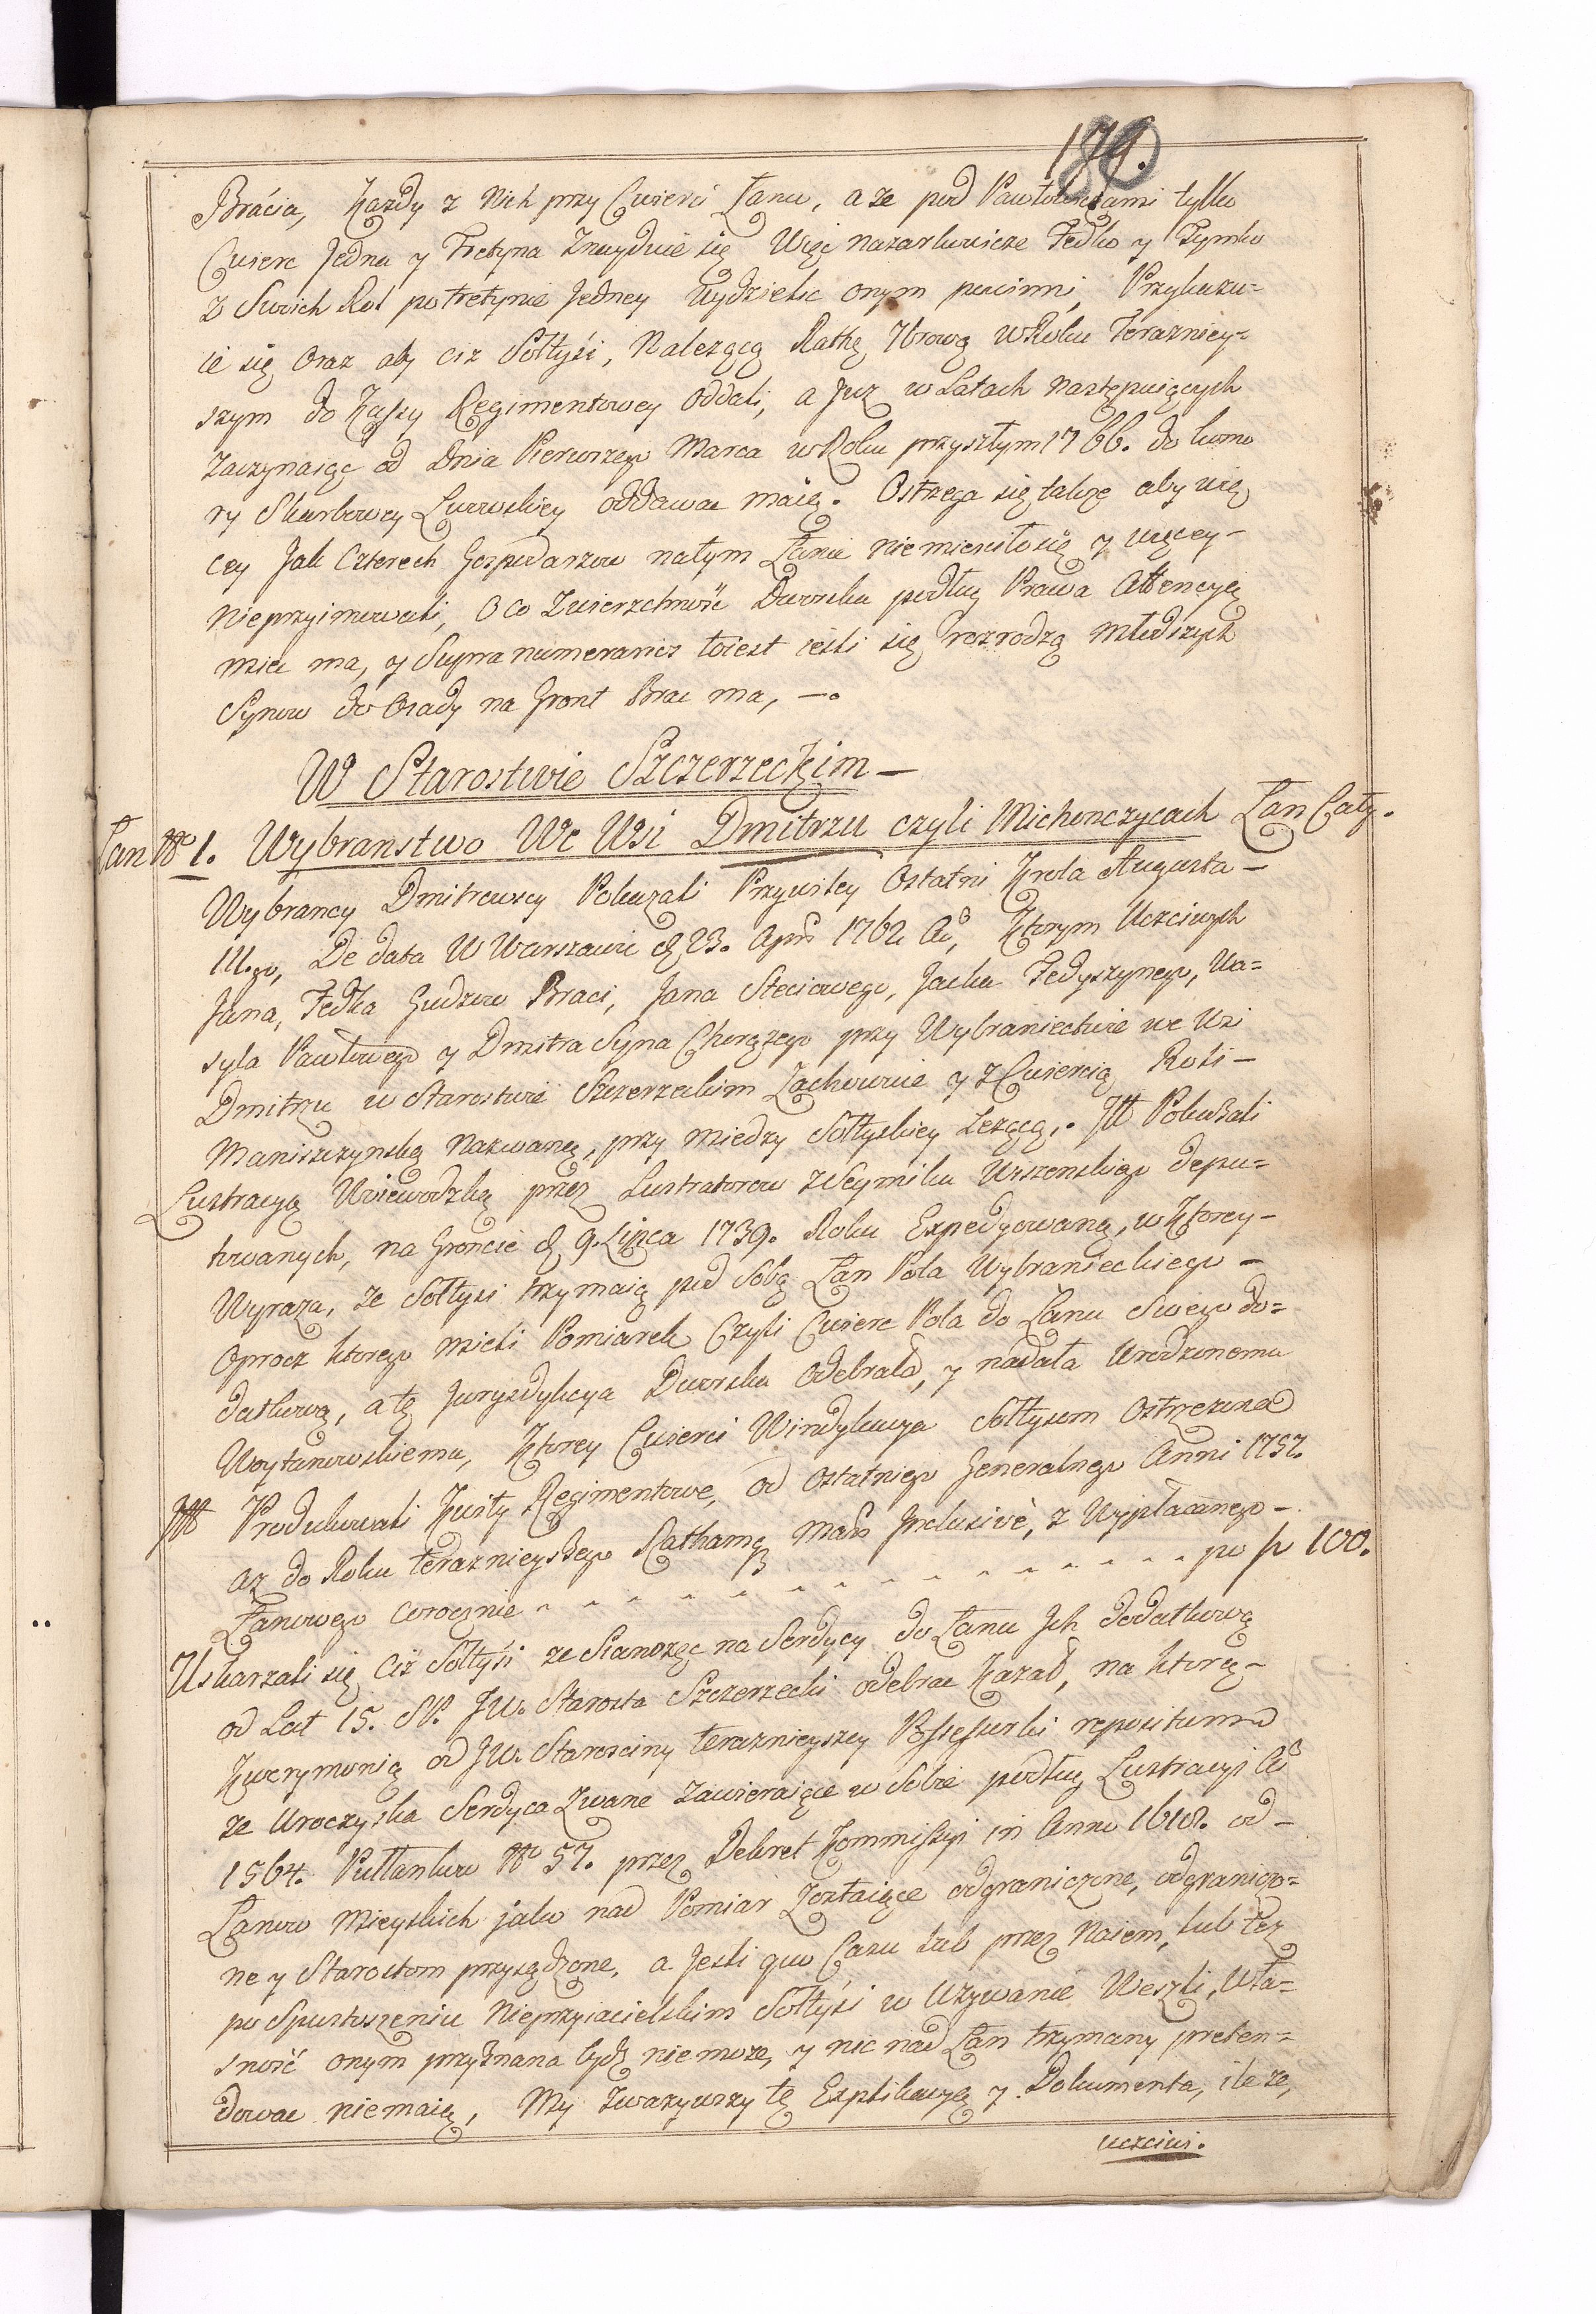 Bracia, Każdy z Nich przy Cwierci Łanu, a ze pod Pawłowiczami tylko
Cwierc Jedna y Tretyna Znayduie się Więc nazarkowicze Fedko y Tymko
z Swoich Rol po tretynie Jedney Wydzielic onym powinni, Przykazu=
ie się oraz aby ciz Sołtysi, Nalezącą Rathę Zbrową w Roku Terazniey=
szym do Kassy Regimentowey oddali, a Juz w Latach następuiących
zaczynaiąc od Dnia Pierwszego Marca w Roku przyszłym 1766. do komo
ry Skarbowey Lwowskiey oddawac maią. Ostrzega się takze aby wię
cey Jak Czterech Gospodarzow na tym Łanie nie miesciło się y więcey-
nie przyimowali, o co Zwierzchność Dworska podług Prawa Attencyą
miec ma, y Supra numerarios toiest iesli się rozrodzą młodszych
Synow do Osady na Gront Brac ma, —.
W Starostwie Szczerzeckim —
Łan No 1. Wybranstwo We Wsi Dmitrzu czyli Michonczycach Łan Cały.
Wybrancy Dmitrowscy Pokazali Przywiley Ostatni Krola Augusta —
III.go, De data W Warszawie d. 23. Apr: 1762 Ao, Ktorym Uczciwych
Jana, Fedka Gudzow Braci, Jana Steciowego, Jacka Fedyszynego, Wa=
syla Pawłowego y Dmitra Syna Chorązego przy Wybraniectwie we Wsi
Dmitrzu w Starostwie Szczerzeckim Zachowuie y z Cwiercią Roli —
Maniszczynską nazwaną, przy miedzy Sołtyskiey Lezącą. Itt Pokazali
Lustracyą Woiewodzką przez Lustratorow z Seymiku Wiszenskiego depu=
towanych, na Groncie d. 9. Lipca 1739. Roku Expedyowaną, w Ktorey —
Wyraza, ze Sołtysi trzymaią pod Sobą Łan Pola Wybranieckiego —
Oprocz ktorego mieli Pomiarek Czyli Cwierc Pola do Łanu Swego do=
datkową, a tę Juryzdykcya Dworska odebrała, y nadała Urodzonemu
Woytanowskiemu, Ktorey Cwierci Windykacya Sołtysom Ostrzezona
Itt Produkowali Kwity Regimentowe, od Ostatniego Generalnego Anni 1757.
az do Roku terazniejszego Rathamę Mart: Inclusive, z Wypłacanego —
Łanowego corocznie - - - - - - - - - - - - - - - po f 100.
Uskarzali się Ciż Sołtysi ze Sianozęc na Serdycy do Łanu Ich dodatkową
od Lat 15. SP. JW. Starosta Szczerzecki odebrac Kazał, na ktorą —
Kwerymonią od JW. Starosciny terazniejszey Possessorki repositum
ze Uroczyska Serdyca Zwane zawieraiące w Sobie podług Lustracyi Ao
1564. Pułłankow No 57. przez Dekret Kommissyi in Anno 1618. od —
Łanow Mieyskich jako nad Pomiar Zostaiące odgraniczone, odgranicz=
ne y Starostom przysądzone, a Jesli quo Casu lub przez Naiem, lub też
po Spustoszeniu Nieprzyiacielskim Sołtysi w Używanie Weszli, Wła=
sność onym przyznana bydz nie moze, y nic nad Łan trzymany preten=
dowac nie maią, My Zwazywszy tę Explikacyą y Dokumenta, ile ze,
uczciwi.